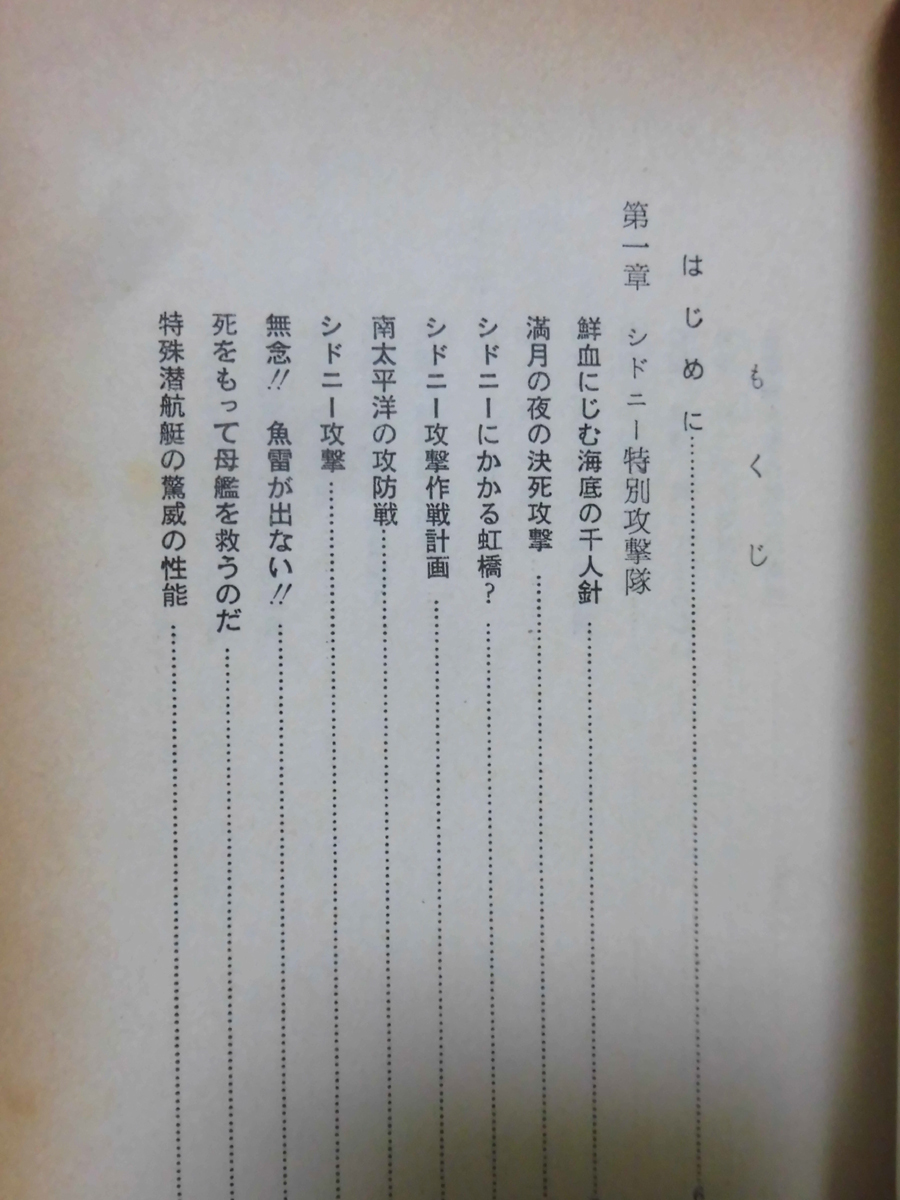 もくじ
はじめに
第一章 シドニー特別攻撃隊
鮮血にじむ海底の千人針
満月の夜の決死攻撃
シドニーにかかる虹橋？
シドニー攻撃作戦計画
南太平洋の攻防戦
シドニー攻撃
無念!! 魚雷が出ない!!
死をもって母艦を救うのだ
特殊潜航艇の驚威の性能